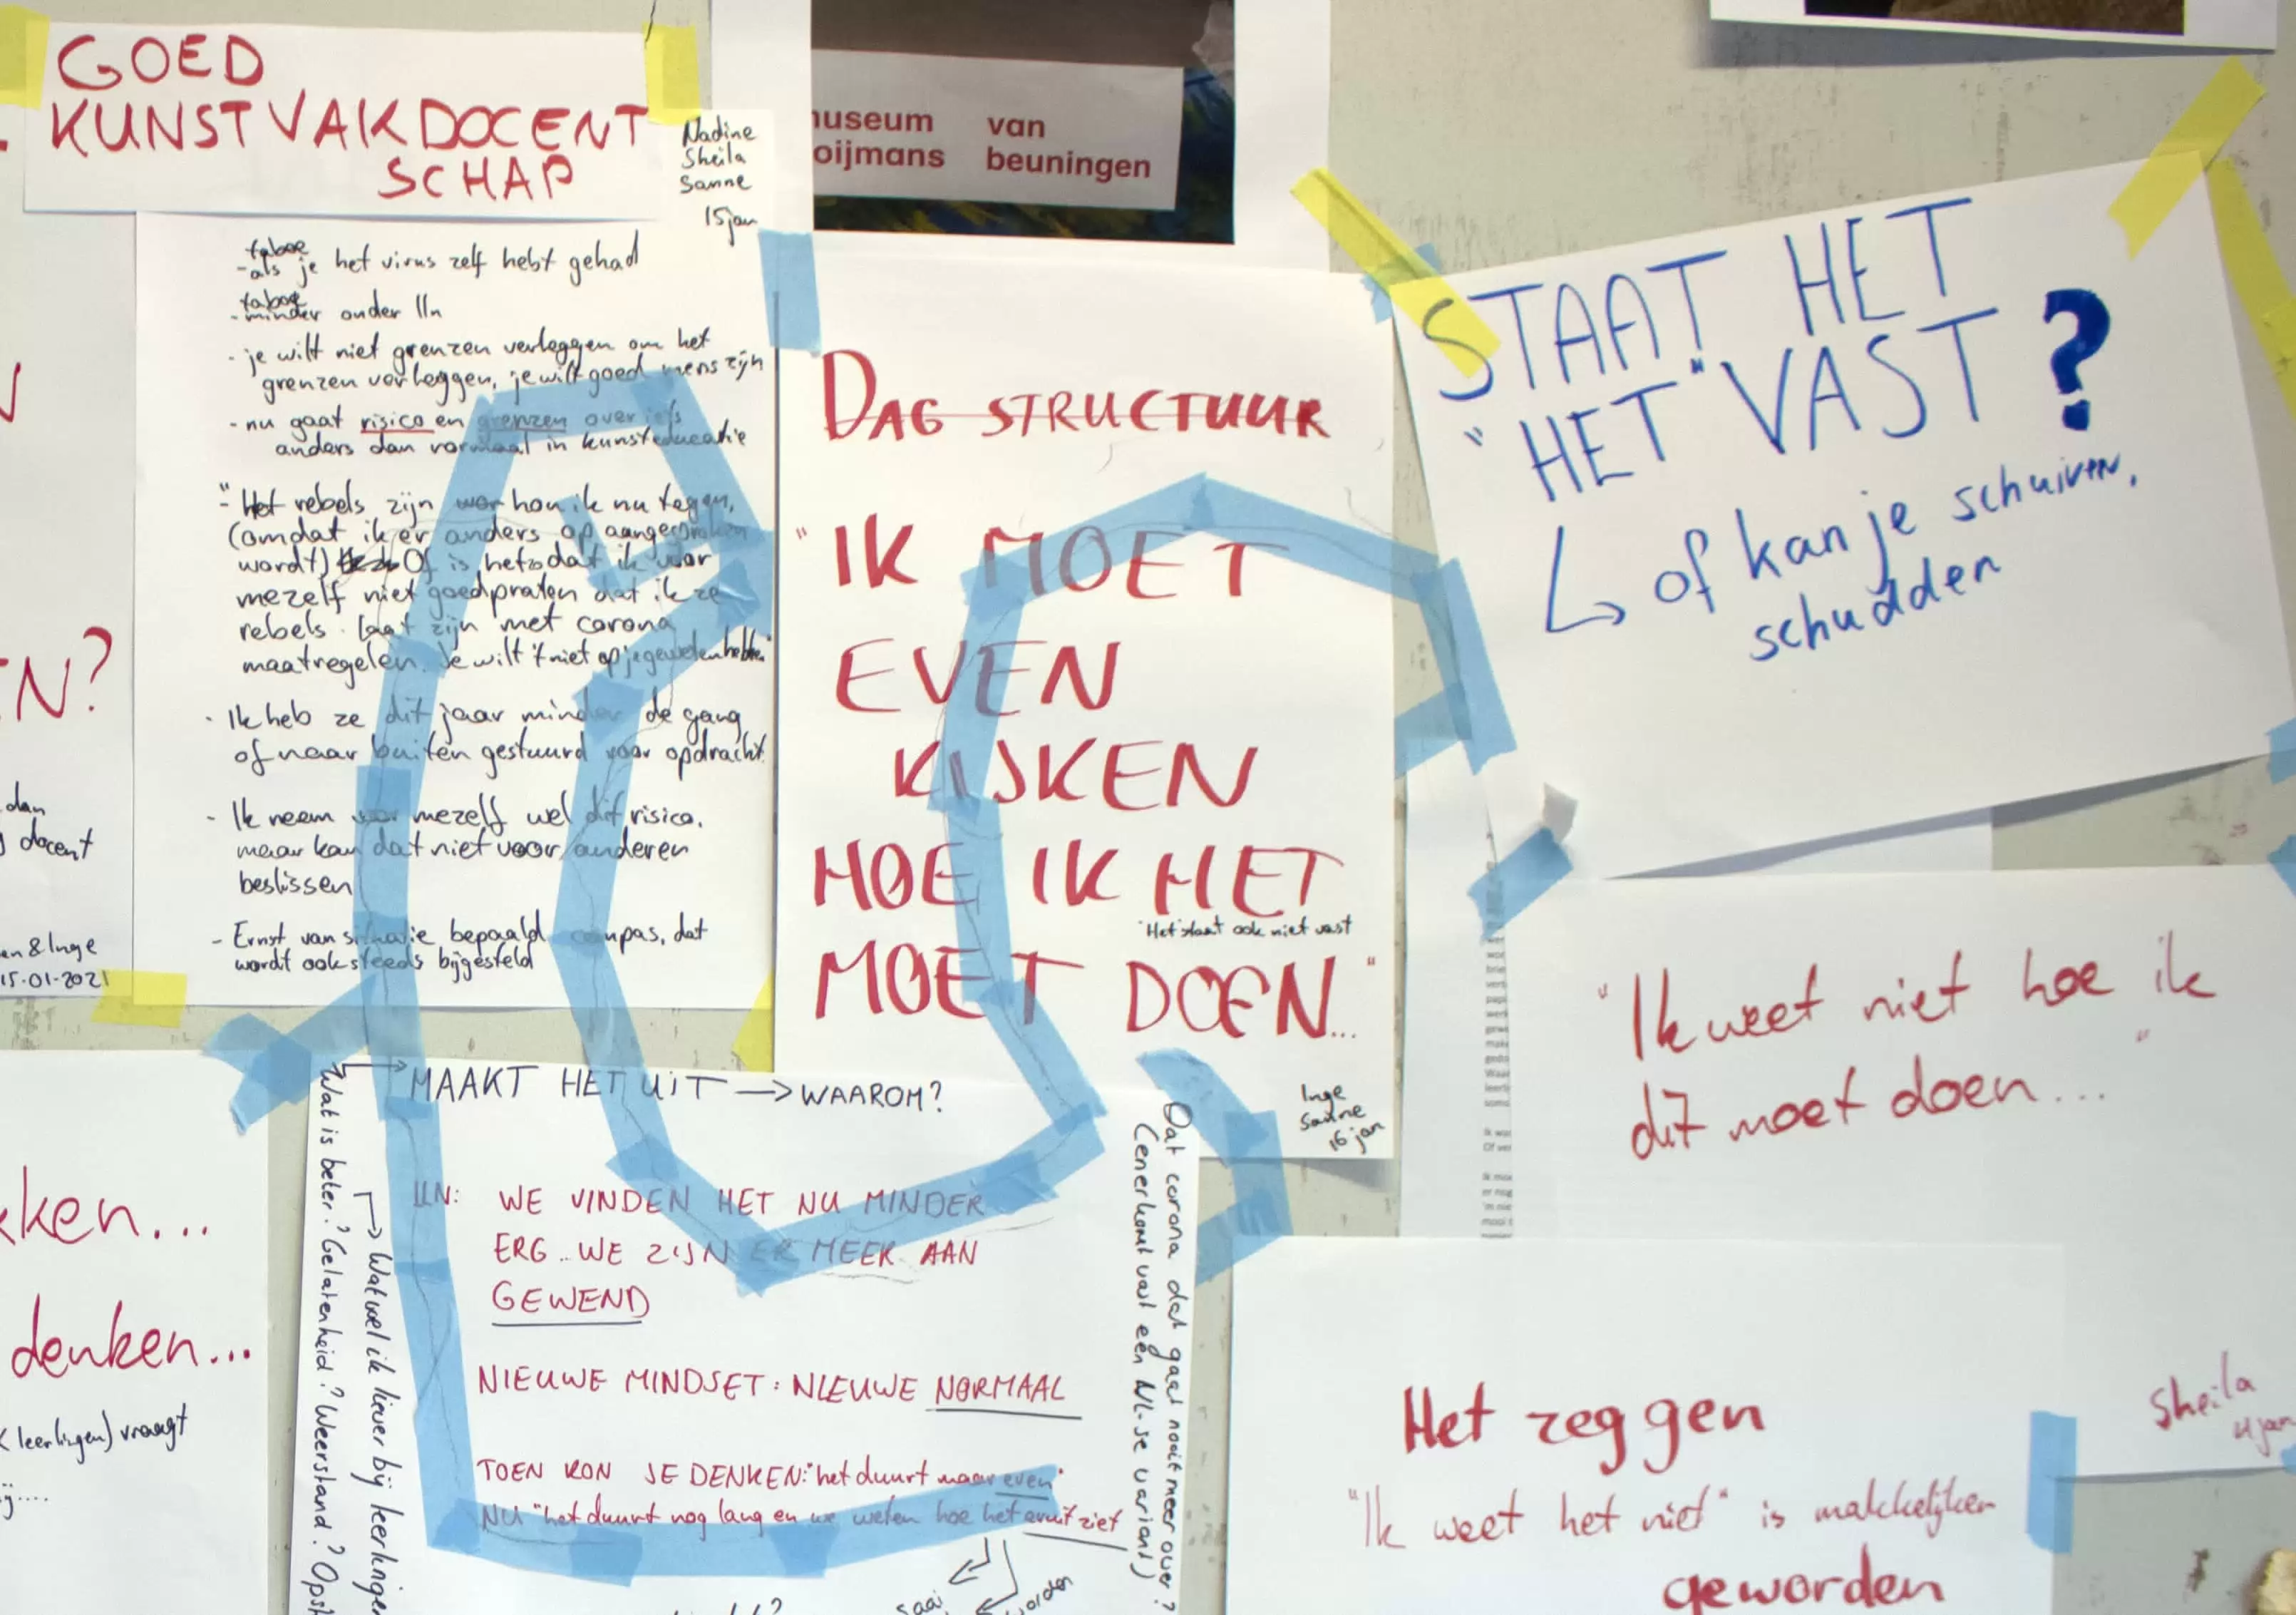 GOED
KUNSTVAKDOCENT
SCHAP
Nadine
Sheila
Sanne
15 jan
taboe
- als je het virus zelf hebt gehad
taboe
- minder onder lln
- je wilt niet grenzen verleggen om het
grenzen verleggen, je wilt goed mens zijn
- nu gaat risico en grenzen over iets
anders dan normaal in kunsteducatie
- "Het rebels zijn hou ik nu tegen,
(omdat ik er anders op aangesproken
wordt) Of is het zo dat ik voor
mezelf niet goedpraten dat ik ze
rebels laat zijn met corona
maatregelen. Je wilt 't niet op je geweten hebben"
- Ik heb ze dit jaar minder de gang
of naar buiten gestuurd voor opdracht.
- Ik neem voor mezelf wel dit risico.
maar kan dat niet voor anderen
beslissen
- Ernst van situatie bepaald compas, dat
wordt ook steeds bijgesteld
museum van
oijmans beuningen
DAG STRUCTUUR
"IK MOET
EVEN
KIJKEN
HOE IK HET
"Het staat ook niet vast
MOET DOEN..."
Inge
Sanne
16 jan
STAAT HET
"HET" VAST?
of kan je schuiven,
schudden
"Ik weet niet hoe ik
dit moet doen..."
Sheila
Het zeggen
"Ik weet het niet" is makkelijker
geworden
MAAKT HET UIT → WAAROM?
LLN: WE VINDEN HET NU MINDER
ERG.. WE ZIJN ER MEER AAN
GEWEND
NIEUWE MINDSET: NIEUWE NORMAAL
TOEN KON JE DENKEN: "het duurt maar even"
NU "het duurt nog lang en we weten hoe het eruit ziet
saai
worden
Wat is beter? Gelatenheid? Weerstand?
Wat voel ik liever bij leerlingen
Dat corona dat gaat nooit meer over?
(en er komt vast een NL-se variant)
EN?
dan
docent
en & Inge
15-01-2021
ken...
denken...
(leerlingen) vraagt
ij....